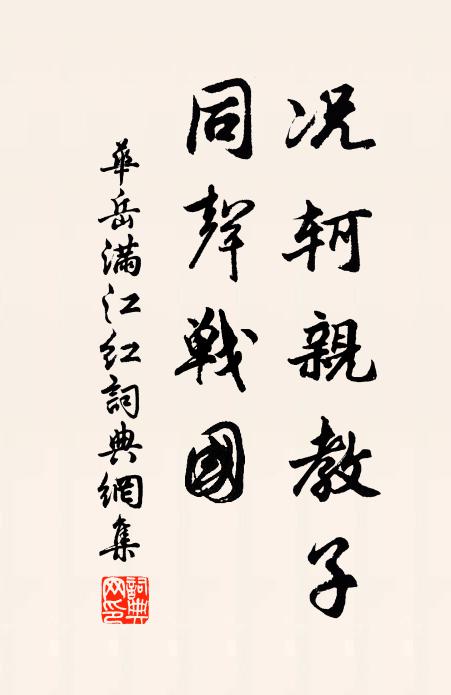 况軻親教子
同聲戰國
華岳滿江紅詞典網集
詞典网印